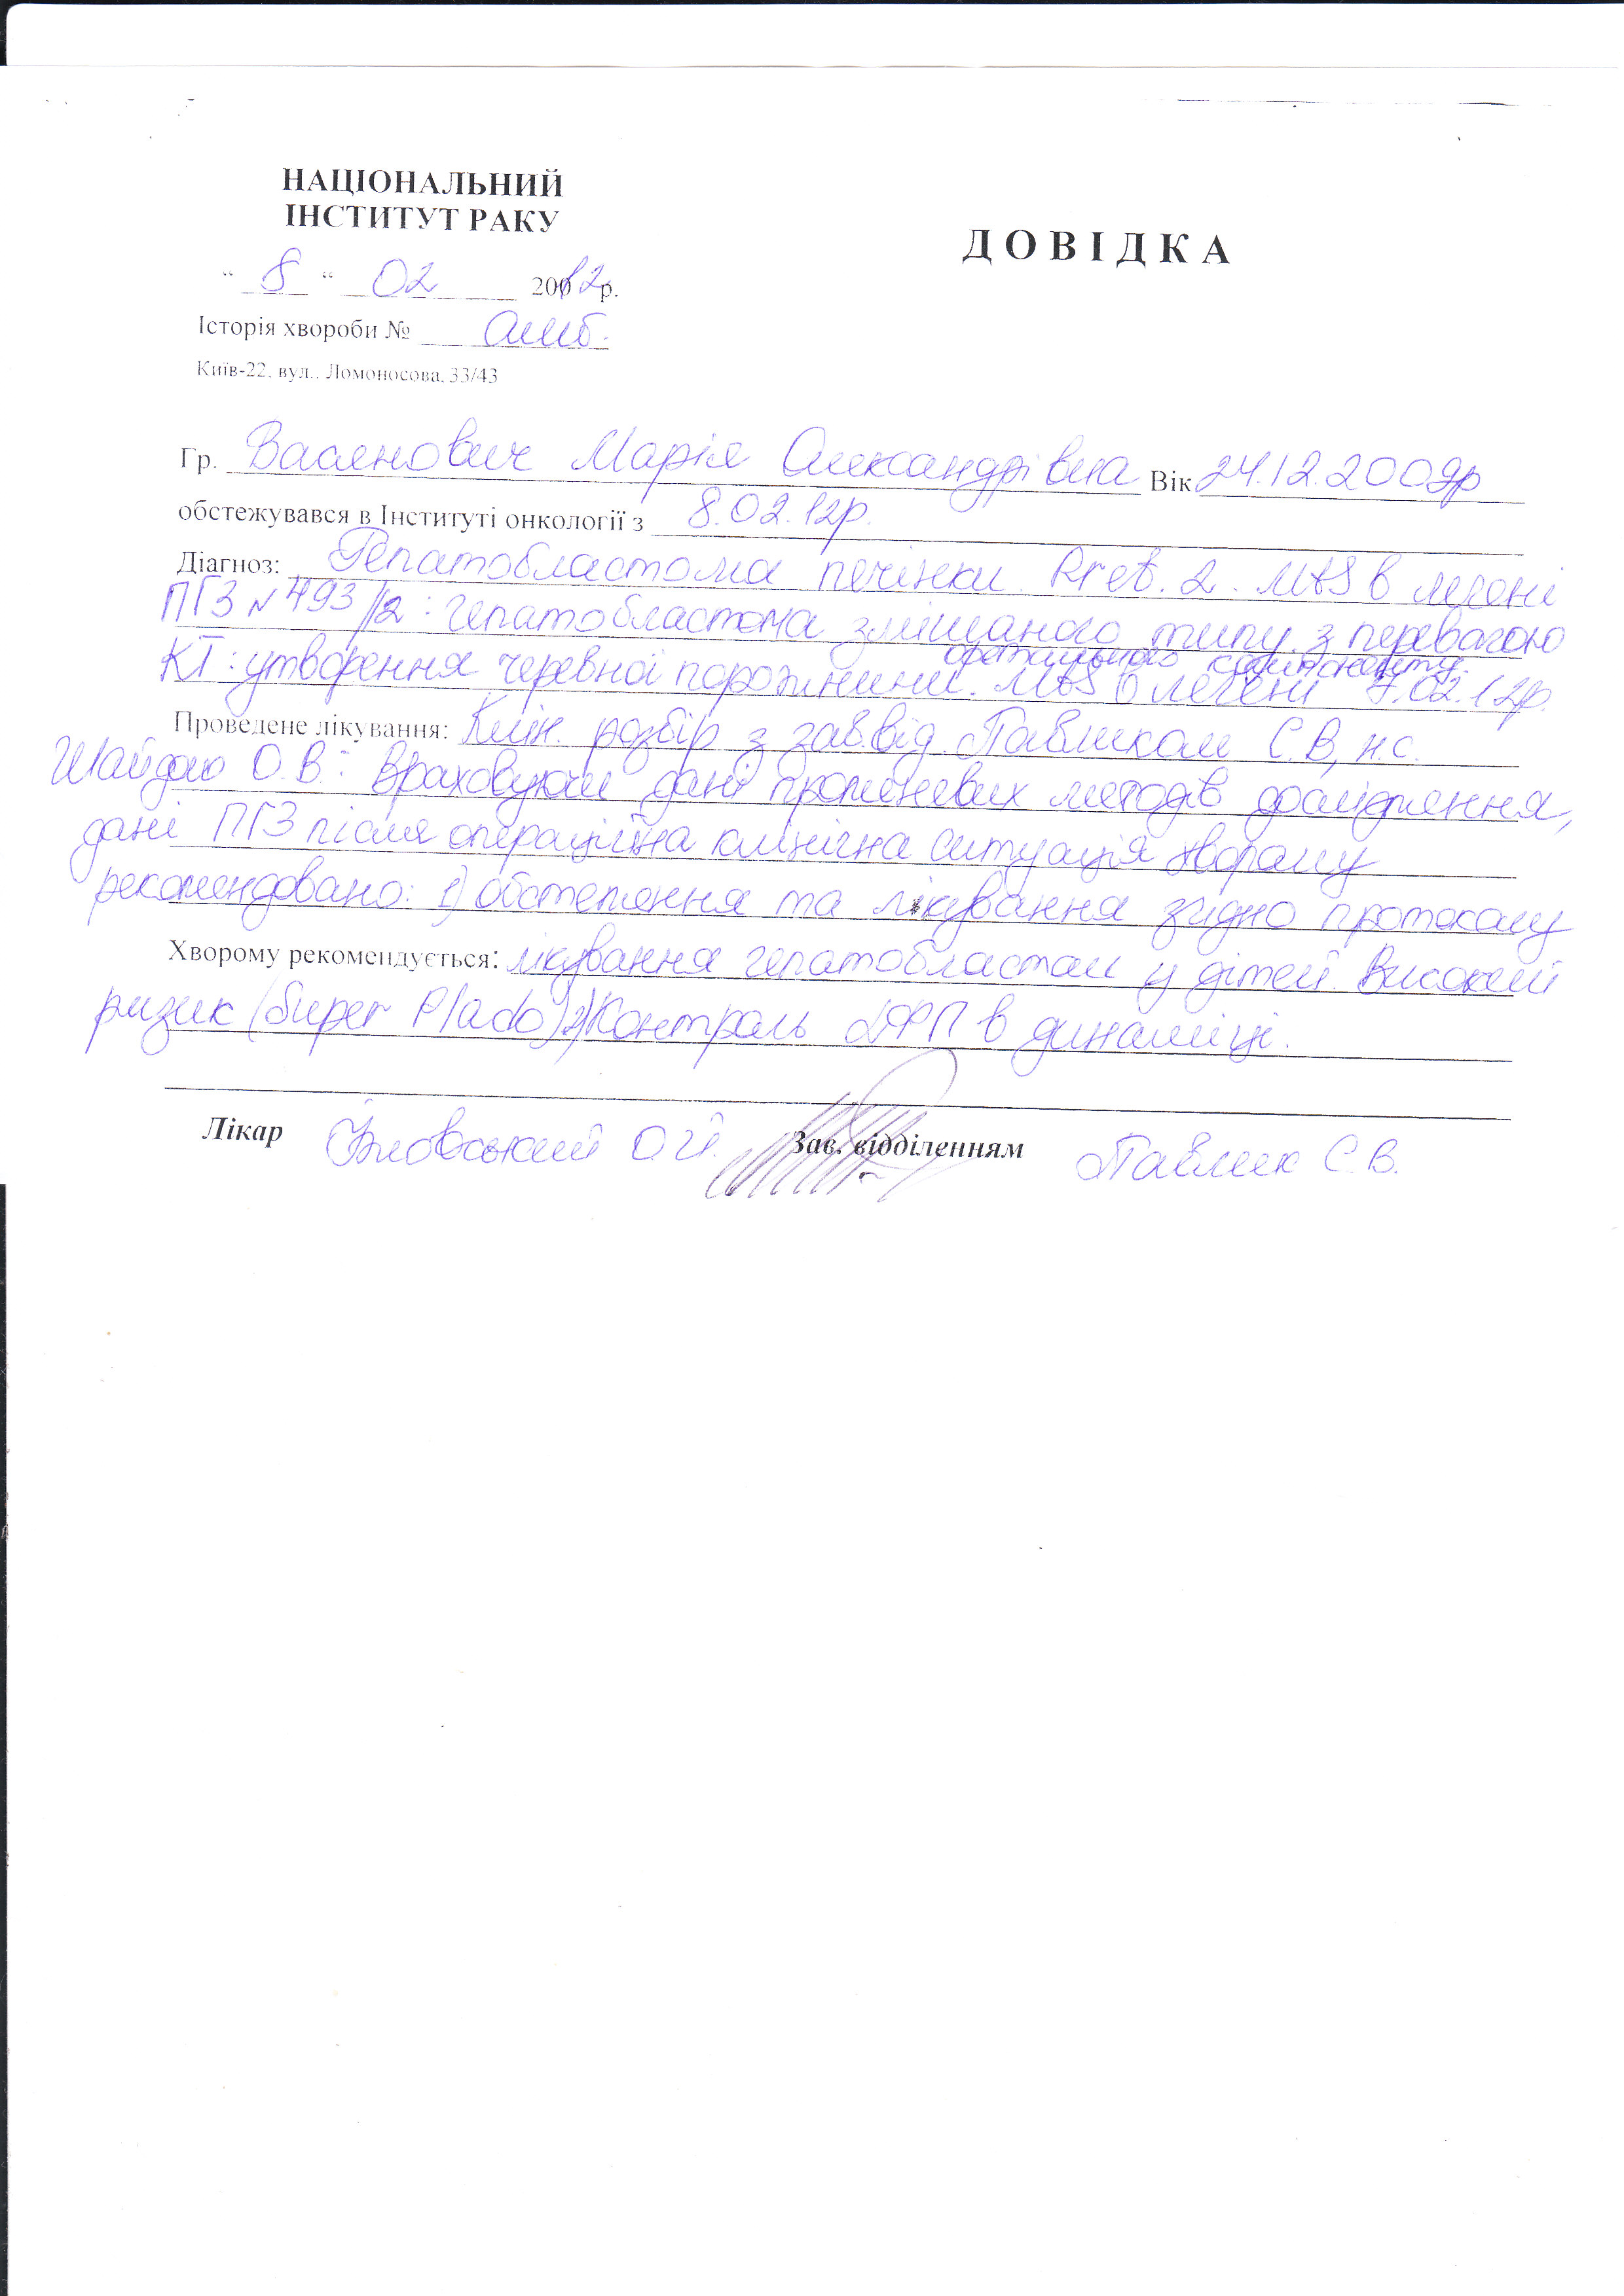 НАЦІОНАЛЬНИЙ
ІНСТИТУТ РАКУ
ДОВІДКА
" 8 " 02 20012р.
Історія хвороби № амб.
Київ-22, вул., Ломоносова, 33/43
Гр. Васянович Марія Олександрівна Вік 24.12.2009р
обстежувався в Інституті онкології з 8.02.12р.
Діагноз: Гепатобластома печінки. Pret. 2. Mts в легені
ПГЗ № 493/12: гепатобластома змішаного типу з перевагою
фетального компоненту.
КТ: утворення черевної порожнини. Mts в легені 7.02.12р.
Проведене лікування: Клін. розбір з зав.від. Павликом С.В, н.с.
Шайдою О.В.: Враховуючи дані променевих методів дослідження,
дані ПГЗ після клінічна ситуація хворому
рекомендовано: 1) обстеження та лікування згідно протоколу
Хворому рекомендується: лікування гепатобластом у дітей. Високий
ризик (Super Plado) 2) Контроль αФП в динаміці.
Лікар О.Й. Зав. відділенням Павлик С.В.